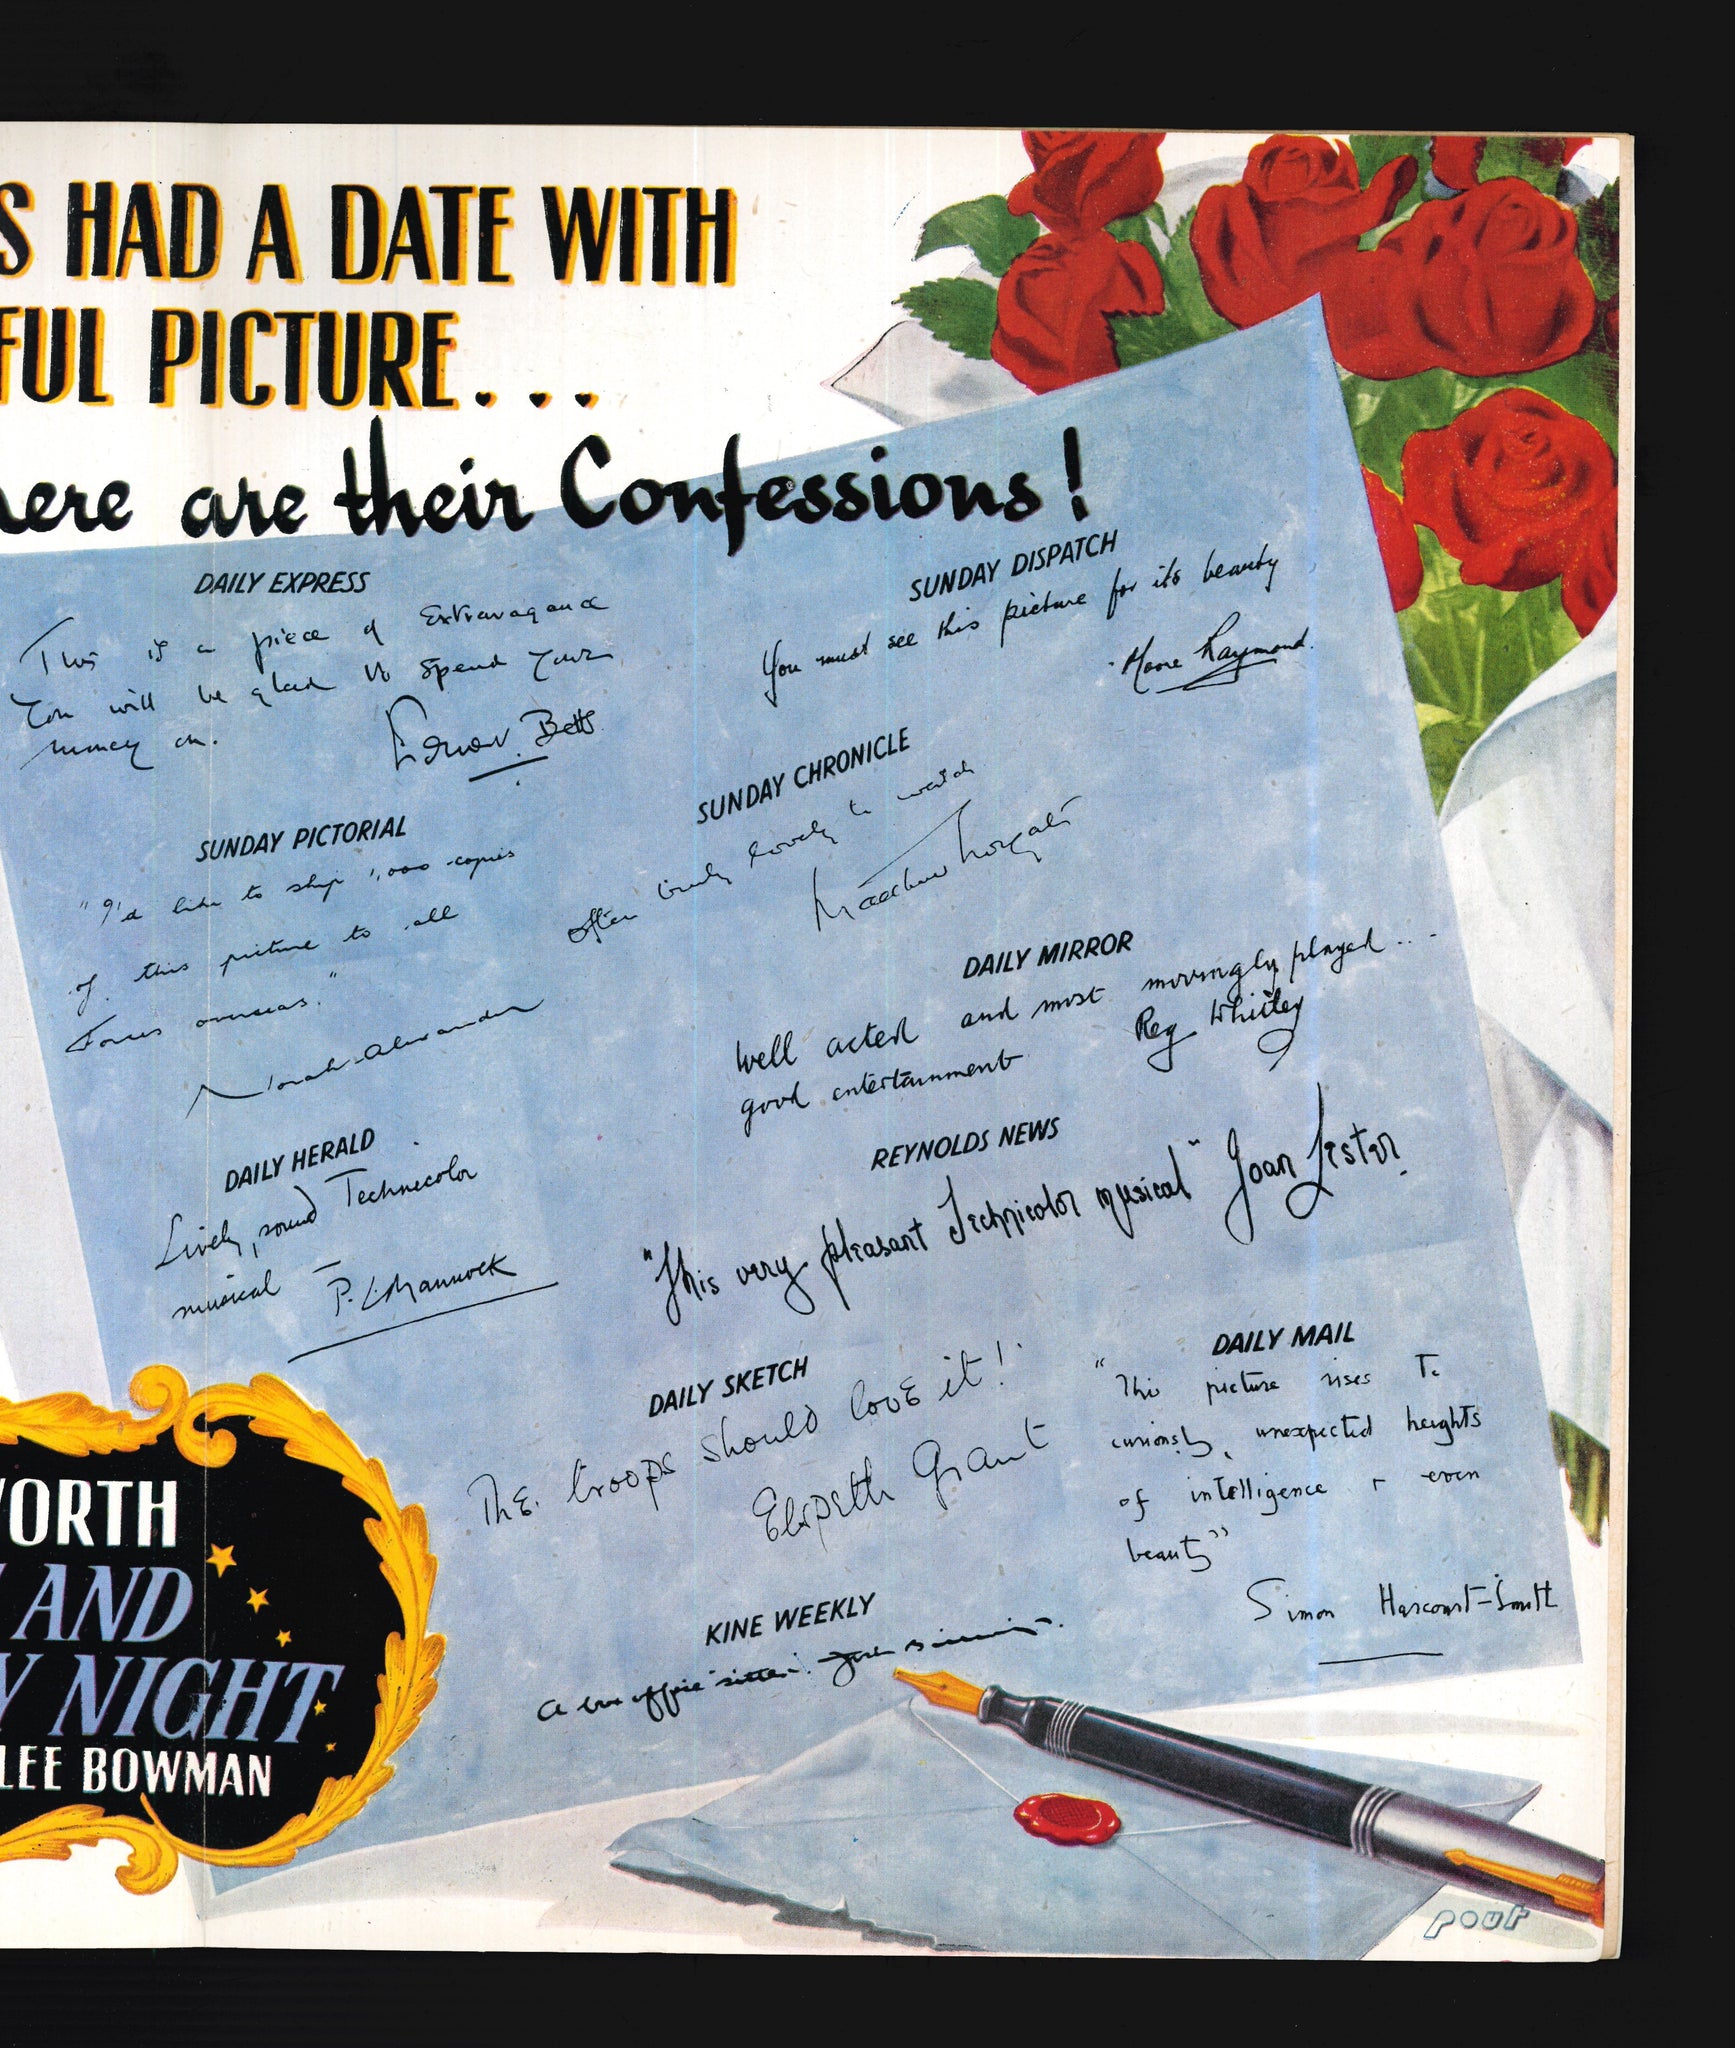 S HAD A DATE WITH
FUL PICTURE...
here are their Confessions!
DAILY EXPRESS
This is a piece of Extravagance
You will be glad to spend your
money on.
Ernest Betts
SUNDAY DISPATCH
You must see this picture for its beauty
Moore Raymond.
SUNDAY PICTORIAL
"I'd like to ship 1,000 copies
of this picture to all
Forces overseas."
Norah Alexander
SUNDAY CHRONICLE
often truly lovely to watch
Matthew Norgate
DAILY MIRROR
Well acted and most movingly played...
good entertainment
Reg Whitley
DAILY HERALD
Lively, sound Technicolor
musical —
P. L. Mannock
REYNOLDS NEWS
"This very pleasant Technicolor musical" Joan Lester.
DAILY SKETCH
The troops should love it!
Elspeth Grant
DAILY MAIL
"This picture rises to
curiously unexpected heights
of intelligence + even
beauty"
Simon Harcourt-Smith
KINE WEEKLY
A box office 'sitter'. Josh Billings.
WORTH
AND
Y NIGHT
LEE BOWMAN
pout